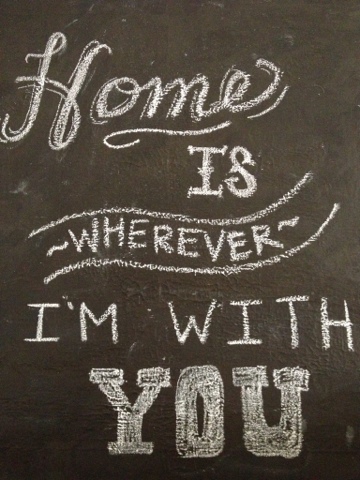 Home
IS
~WHEREVER~
I'M WITH
YOU